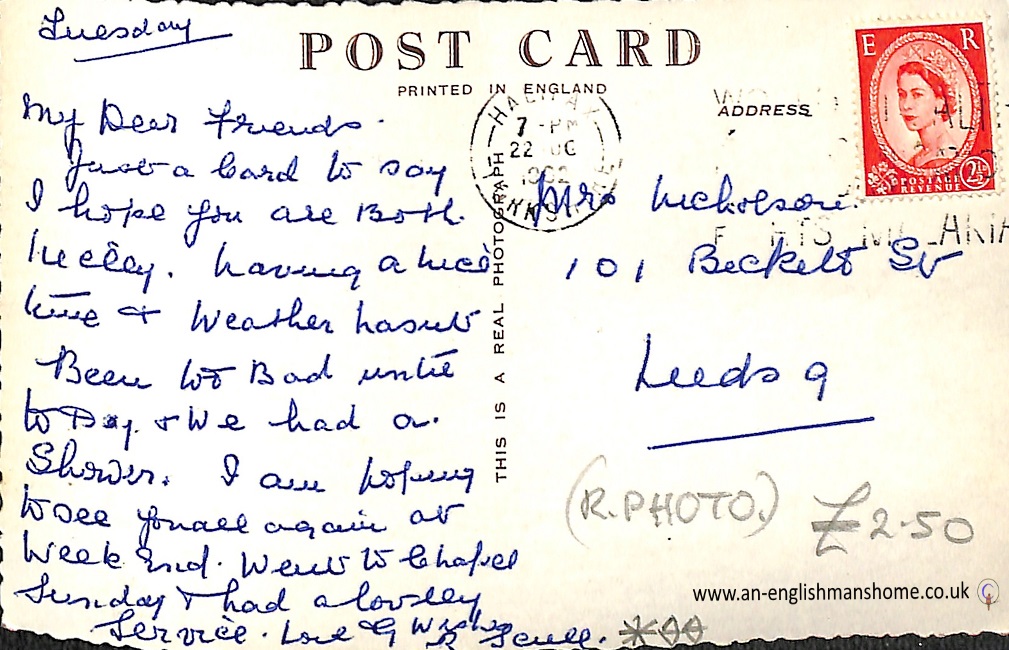 Tuesday
POST CARD
PRINTED IN ENGLAND
ADDRESS
My Dear Friends.
Just a Card to say
I hope you are Both
Nicely. having a nice
time & Weather hasnt
Been too Bad until
to Day. & We had a
Shower. I am hoping
to see you all again at
Week End. Went to Chapel
Sunday & had a lovely
Service. Love & Wishes
THIS IS A REAL PHOTOGRAPH
HALIFAX
7 - PM
22
E R
POSTAGE
REVENUE
2½
Mrs Nicholson.
101 Beckett St
Leeds 9
(R. PHOTO.) £2.50
www.an-englishmanshome.co.uk